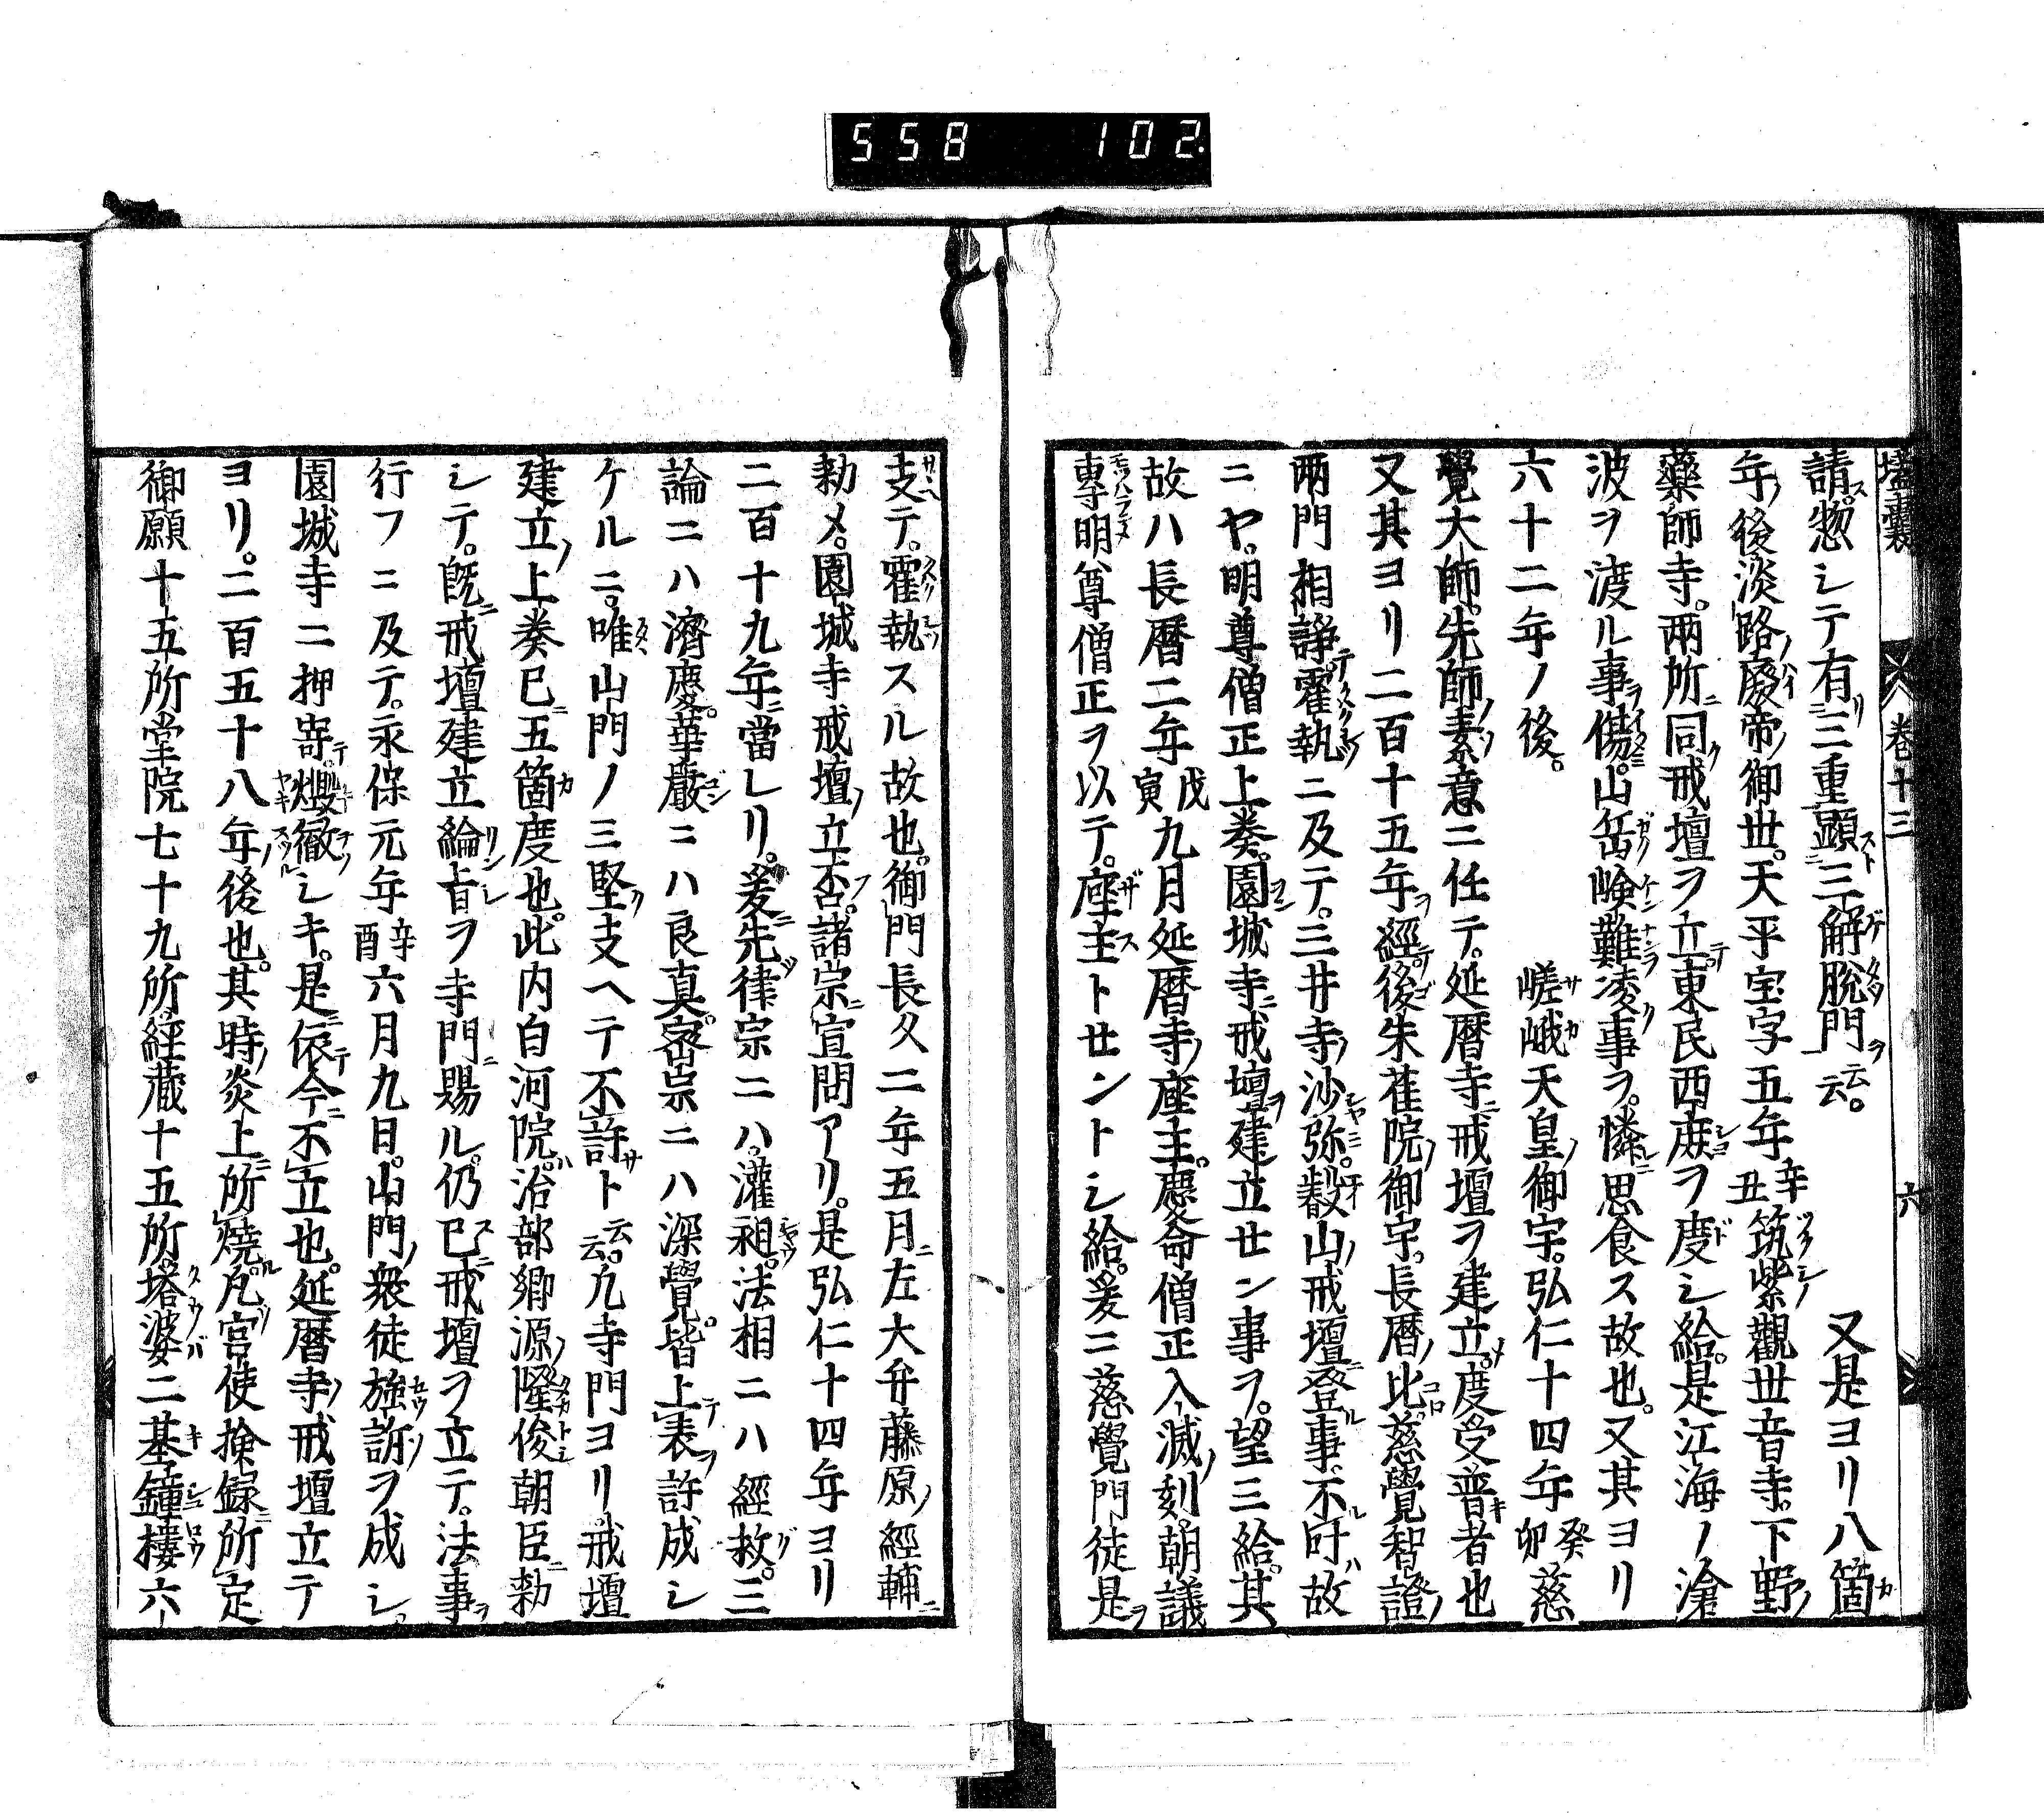 558 102.
壒囊 巻十三 六
請惣シテ有三重顯三解脫門ヲ云云。 又是ヨリ八箇
年ノ後淡路ノ廢帝ノ御丗。天平宝字五年辛丑筑紫觀丗音寺。下野ノ
藥師寺。两所ニ同ク戒壇ヲ立テ東民西庶ヲ度シ給。是江海ノ滄
波ヲ渡ル事ヲ傷。山岳嶮難凌事ヲ。憐思食ス故也。又其ヨリ
六十二年ノ後。 嵯峨天皇ノ御宇。弘仁十四年癸卯慈
覺大師。先師ノ素意ニ任テ。延暦寺ニ戒壇ヲ建立。度受普者也
又其ヨリ二百十五年ヲ經テ後朱雀院ノ御宇。長暦ノ比。慈覺智證ノ
两門相諍テ霍執ニ及テ。三井寺ノ沙弥。叡山ノ戒壇ニ登事。不可ハ故
ニヤ。明尊僧正上奏。園城寺ニ戒壇ヲ建立セン事ヲ。望三給。其
故ハ長暦二年戊寅九月延暦寺ノ座主。慶命僧正入滅ノ刻。朝議
専明尊僧正ヲ以テ。座主トセントシ給。爰ニ慈覺門徒是ヲ
支テ。霍執スル故也。御門長久二年五月ニ左大弁藤原ノ經輔ニ
勅メ。園城寺戒壇ノ立否。諸宗ニ宣問アリ。是弘仁十四年ヨリ
二百十九年ニ當レリ。爰ニ先律宗ニハ。灌禎。法相ニハ經救。三
論ニハ濟慶。華嚴ニハ良真。密宗ニハ深覺。皆上表ヲ許成シ
ケルニ。唯山門ノ三堅支ヘテ不許ト云云。凡寺門ヨリ戒壇
建立ノ上奏已ニ五箇度也。此内白河院。治部卿源ノ隆俊朝臣ニ勅
シテ。既ニ戒壇建立綸旨ヲ寺門ニ賜ル。仍已ニ戒壇ヲ立テ。法事ヲ
行フニ及テ。永保元年辛酉六月九日。山門ノ衆徒強訴ヲ成シ。
園城寺ニ押寄テ燒徹シキ。是ニ依テ今ニ不立也。延暦寺ノ戒壇立テ
ヨリ。二百五十八年ノ後也。其時ノ炎上ニ所燒。凡宮使撿錄ニ所定
御願十五所堂院七十九所。經蔵十五所。塔婆二基鐘樓六